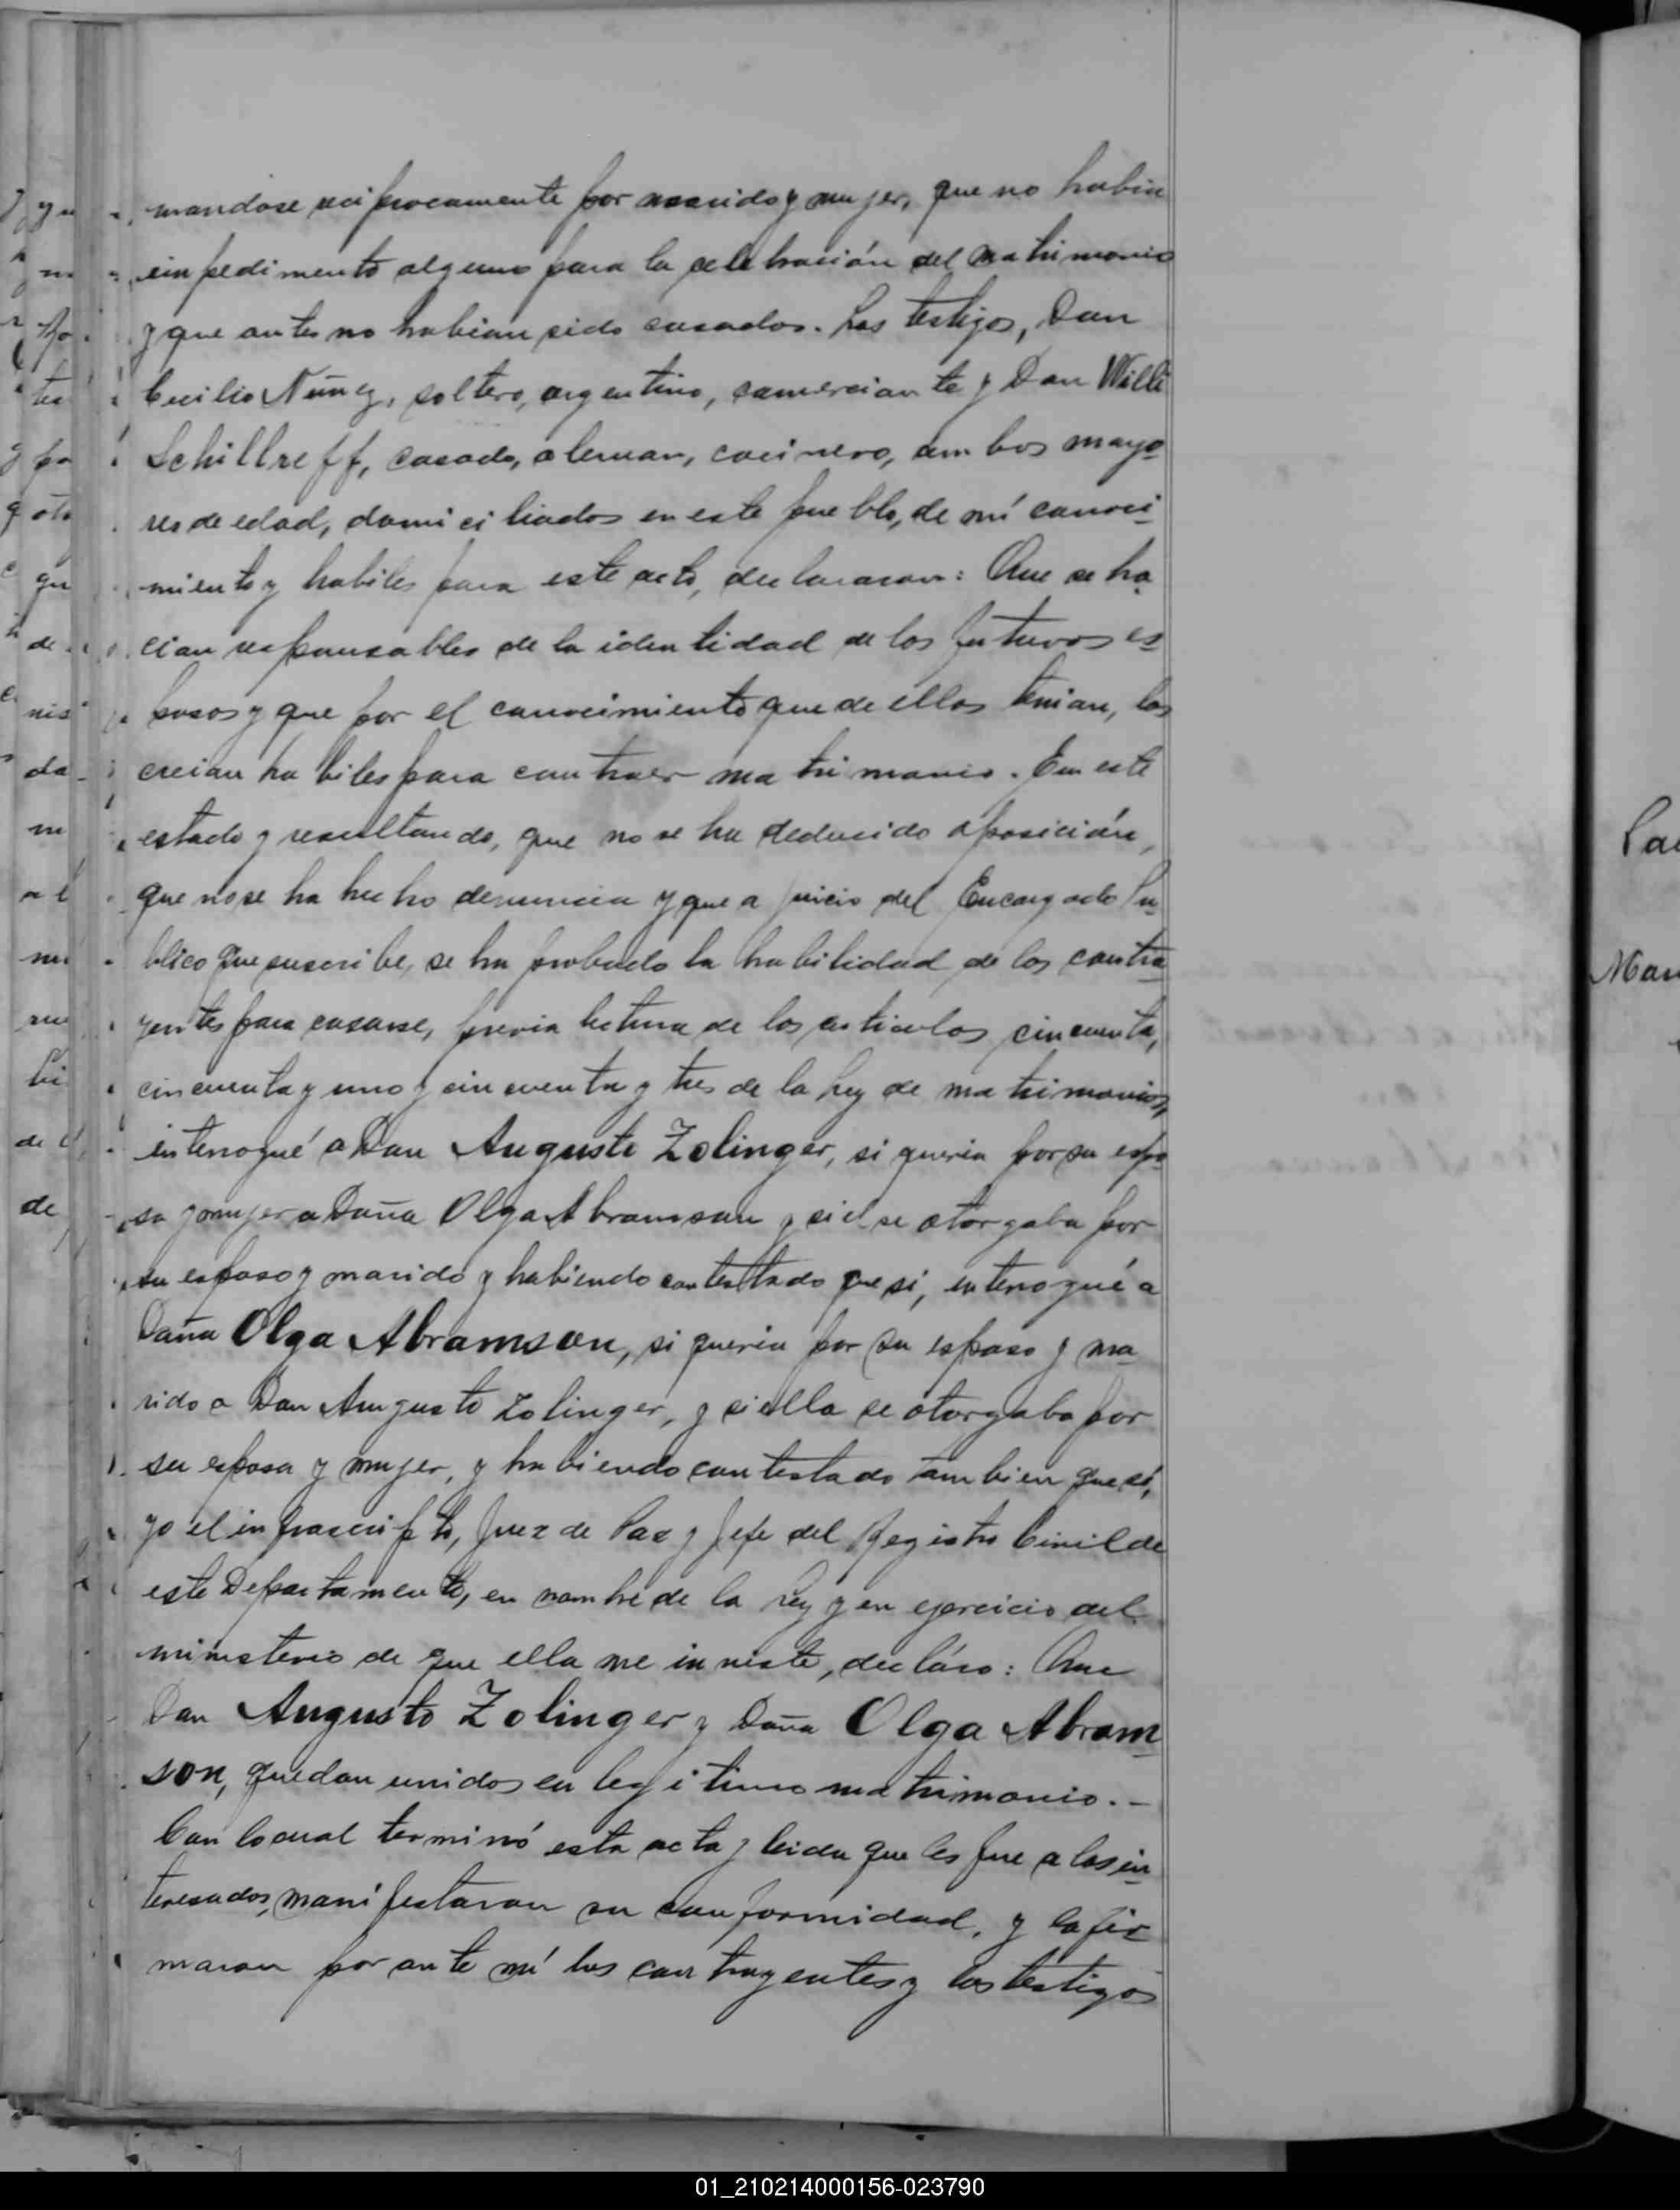 mandose reciprocamente por marido y mujer, que no habia
impedimento alguno para la celebración del matrimonio
y que antes no habian sido casados. Los testigos, Don
Cecilio Nuñez, soltero, argentino, comerciante y Don Willi
Schillreff, casado, aleman, cocinero, ambos mayo
res de edad, domiciliados en este pueblo, de mí conoci
miento y habiles para este acto, declararon: Que se ha
cian responsables de la identidad de los futuros es
posos y que por el conocimiento que de ellos tenian, los
creian habiles para contraer matrimonio. En este
estado y resultando, que no se ha deducido oposición,
que no se ha hecho denuncia y que a juicio del Encargado Pu
blico que suscribe, se ha probado la habilidad de los contra
yentes para casarse, previa lectura de los articulos cincuenta,
cincuenta y uno y cincuenta y tres de la Ley de matrimonios,
interrogué a Don Augusto Zolinger, si queria por su espo
sa y mujer a Doña Olga Abramson y si el se otorgaba por
su esposo y marido y habiendo contestado que si, interrogué a
Doña Olga Abramson, si queria por su esposo y ma
rido a Don Augusto Zolinger, y si ella se otorgaba por
su esposa y mujer, y habiendo contestado tambien que sí,
yo el infrascripto, Juez de Paz y Jefe del Registro Civil de
este Departamento, en nombre de la Ley y en ejercicio del
ministerio de que ella me inviste, decláro: Que
Don Augusto Zolinger y Doña Olga Abram
son, quedan unidos en legitimo matrimonio.-
Con lo cual terminó esta acta y leida que les fue a los in
teresados, manifestaron su conformidad, y la fir
maron por ante mí los contrayentes y los testigos
01_210214000156-023790